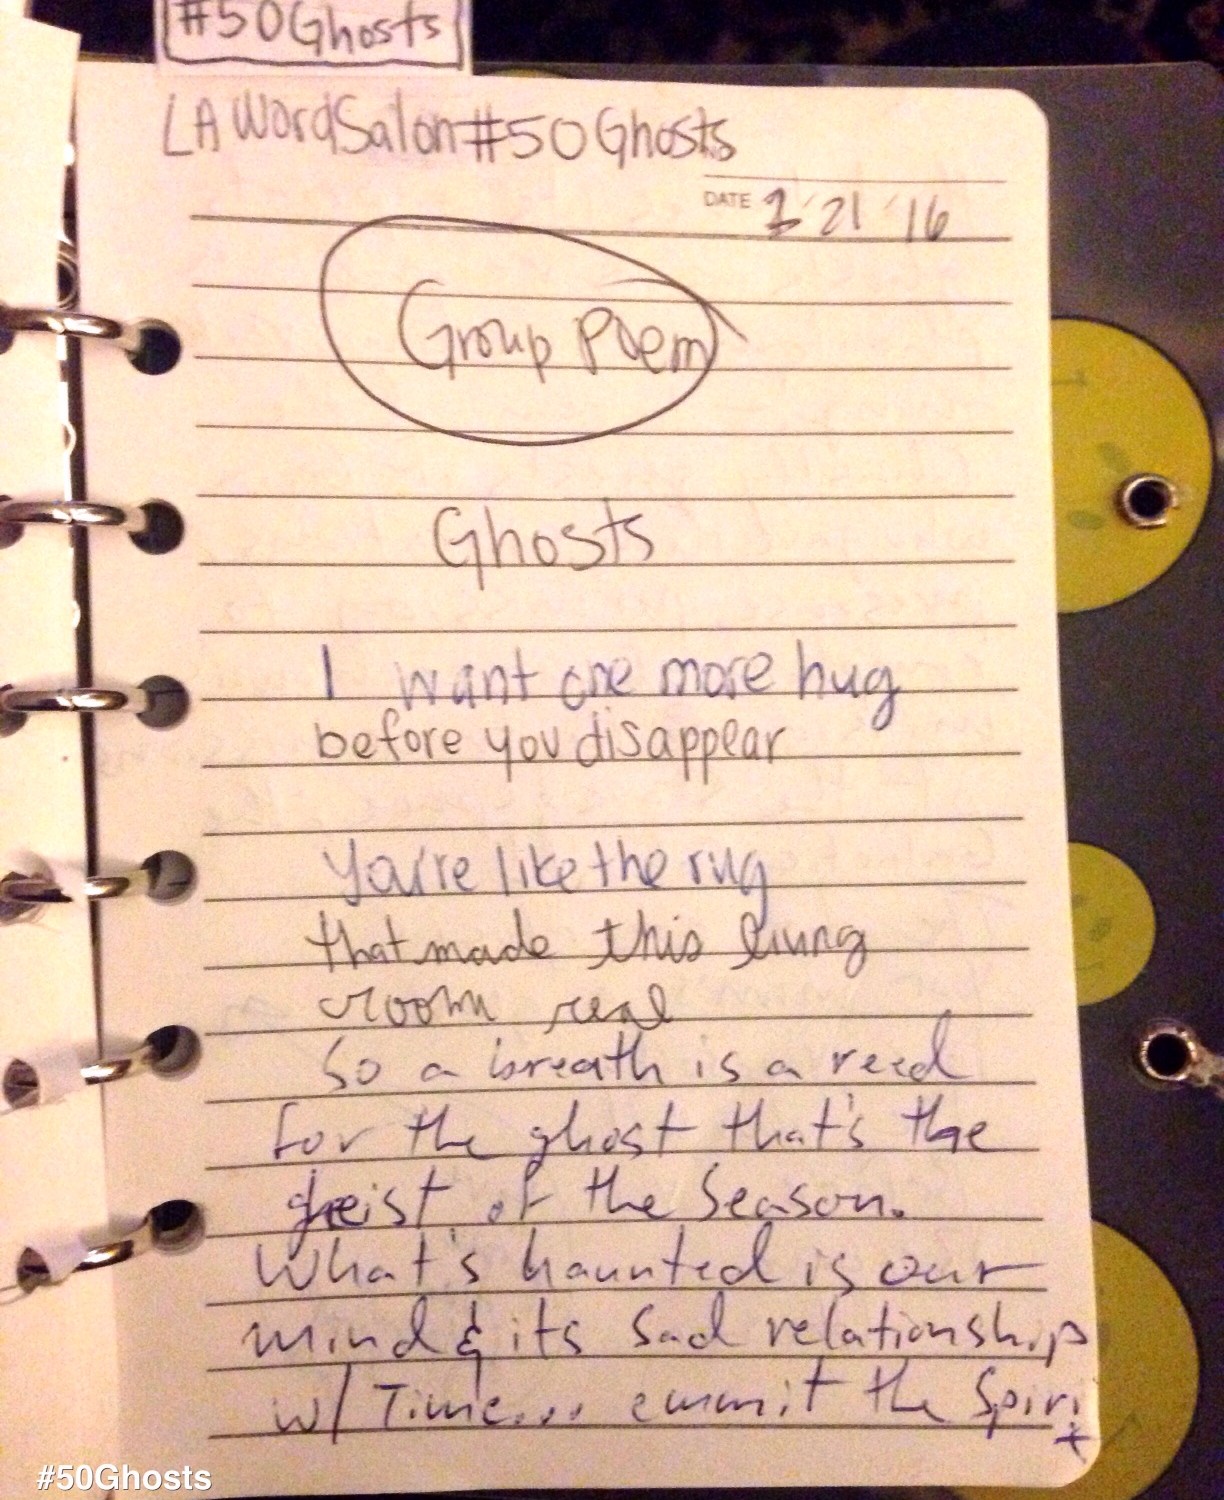 #50Ghosts
LA WordSalon #50Ghosts
DATE 1 21 '16
Group Poem
Ghosts
I want one more hug
before you disappear
You're like the rug
that made this living
room real
So a breath is a reed
for the ghost that's the
geist of the Season.
What's haunted is our
mind & its sad relationship
w/ Time... emmit the Spirit
#50Ghosts